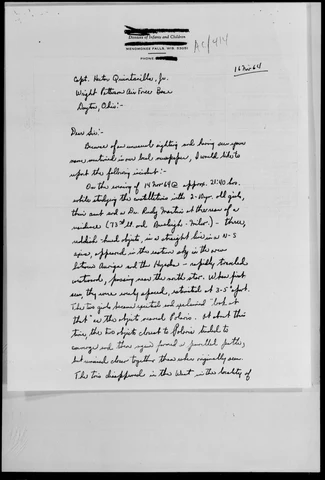 Diseases of Infants and Children
MENOMONEE FALLS, WIS. 53051
PHONE
AC/414
16 Nov 64
Capt. Hector Quintanilla, Jr.
Wright Patterson Air Force Base
Dayton, Ohio:-
Dear Sir:-
Because of an unusual sighting and having seen your
name mentioned in our local newspaper, I would like to
report the following incident:-
On the evening of 14 Nov 64 @ approx. 21:40 hrs.
while studying the constellations with 2- yr. old girls,
their aunt and a Dr. Martin at the rear of a
residence (73rd St. and Burleigh - Milw.) - three,
reddish objects, in a straight line in a N-S
axis, appeared in the eastern sky in the area
between Auriga and the Hyades - rapidly traveled
westward, passing near the north star. When first
seen, they were evenly spaced, estimated at 3-5° apart.
The two girls became excited and exclaimed "look at
that" as the objects neared Polaris. At about this
time, the two objects closest to Polaris tended to
converge and then again formed a parallel path,
but remained closer together than when originally seen.
The trio disappeared in the West in the locality of